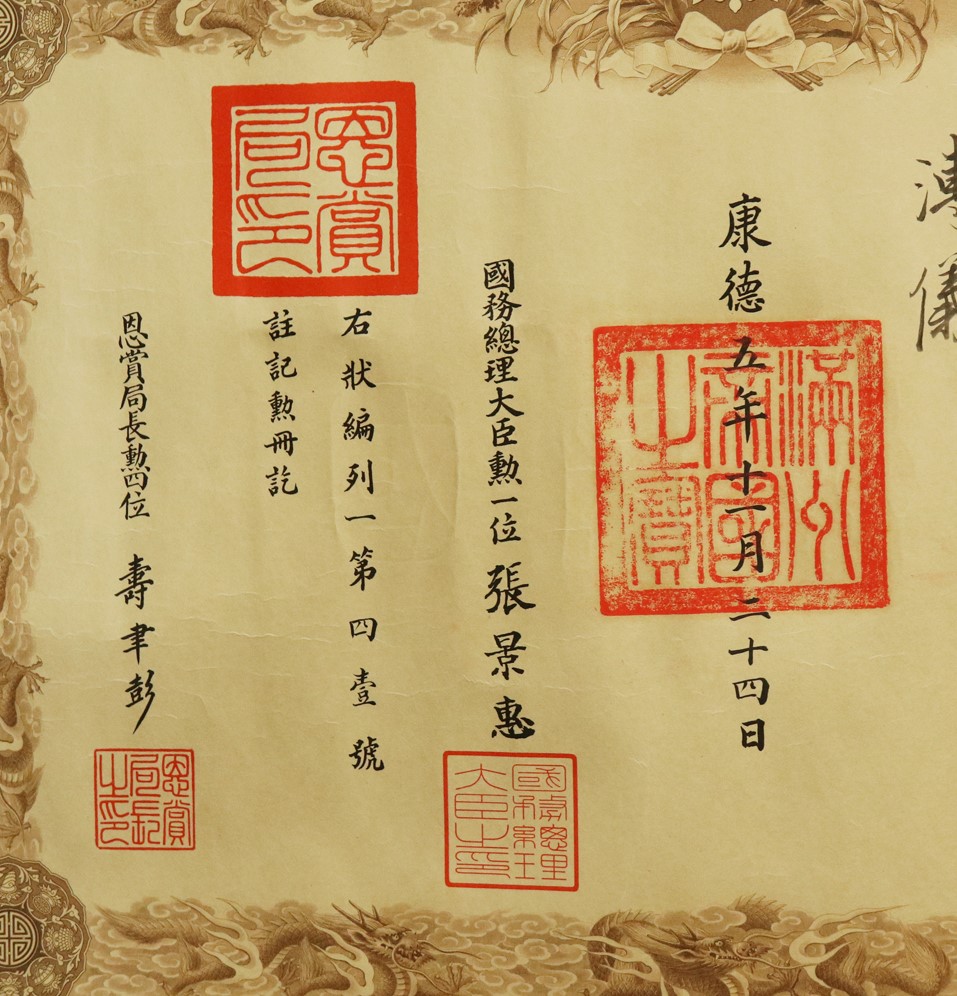 溥儀
康德五年十一月二十四日
滿洲
帝國
之寶
國務總理大臣勲一位張景惠
國務總理
大臣之印
右狀編列一第四壹號
註記勲冊訖
恩賞
局印
恩賞局長勲四位 壽聿彭
恩賞
局長
之印